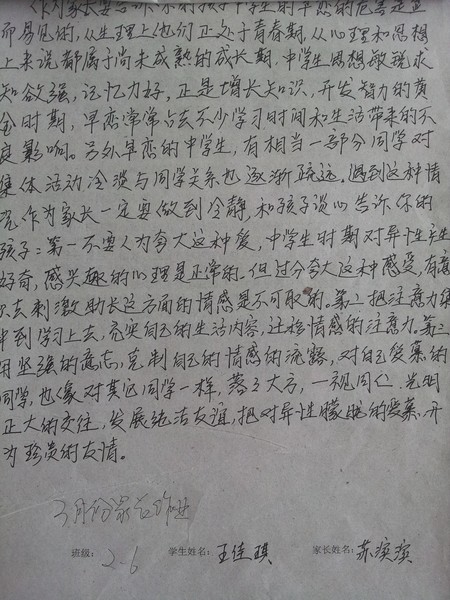 作为家长要告诉你的孩子中学生的早恋的危害是显
而易见的，从生理上他们正处于青春期，从心理和思想
上来说都属于尚未成熟的成长期，中学生思想敏锐求
知欲强，记忆力好，正是增长知识，开发智力的黄
金时期，早恋常常占去不少学习时间和生活带来的不
良影响。另外早恋的中学生，有相当一部分同学对
集体活动冷淡与同学关系也逐渐疏远。遇到这种情
况作为家长一定要做到冷静，和孩子谈心告诉你的
孩子：第一不要人为夸大这种爱，中学生时期对异性产生
好奇，感兴趣的心理是正常的。但过分夸大这种感受，有意
识去刺激助长这方面的情感是不可取的。第二把注意力集
中到学习上去，充实自己的生活内容，迁移情感的注意力。第三
用坚强的意志，克制自己的情感的流露，对自己爱慕的
同学，也像对其它同学一样，落落大方，一视同仁，光明
正大的交往，发展纯洁友谊，把对异性朦胧的爱慕，升
为珍贵的友情。
3月份家长作业
班级：2-6 学生姓名：王佳琪 家长姓名：苏滨滨